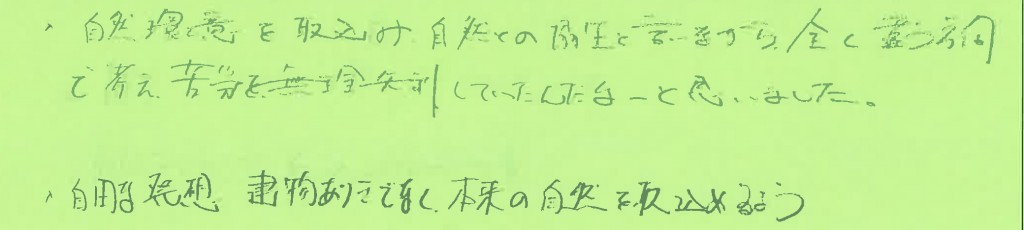 、自然環境を取込み自然との共生と言いながら、全く違う方向
で考え、     を無理矢理していたんだなーと思いました。
、自由な発想 建物ありきでなく、本来の自然を取込めるよう